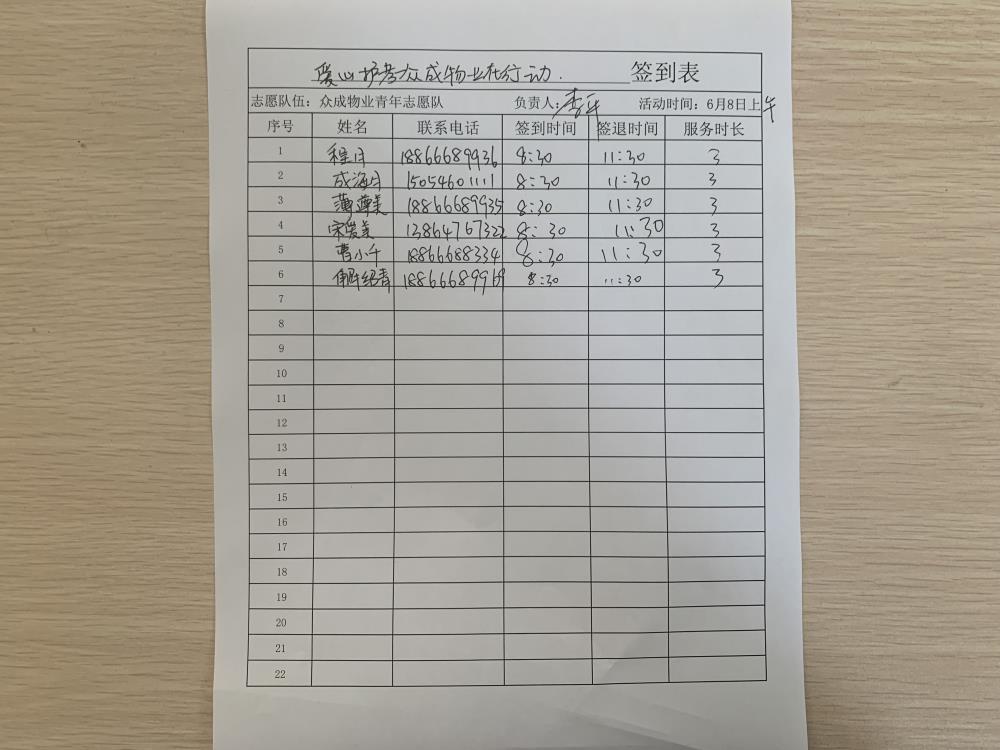 爱心护考众成物业在行动. 签到表
志愿队伍：众成物业青年志愿队 负责人： 活动时间：6月8日上午
序号 姓名 联系电话 签到时间 签退时间 服务时长
1 程月 18866689936 8:30 11:30 3
2 成海月 15054601111 8:30 11:30 3
3 薄莲美 18866689935 8:30 11:30 3
4 宋爱美 13864767322 8:30 11:30 3
5 曹小千 18866688334 8:30 11:30 3
6 18866689969 8:30 11:30 3
7
8
9
10
11
12
13
14
15
16
17
18
19
20
21
22